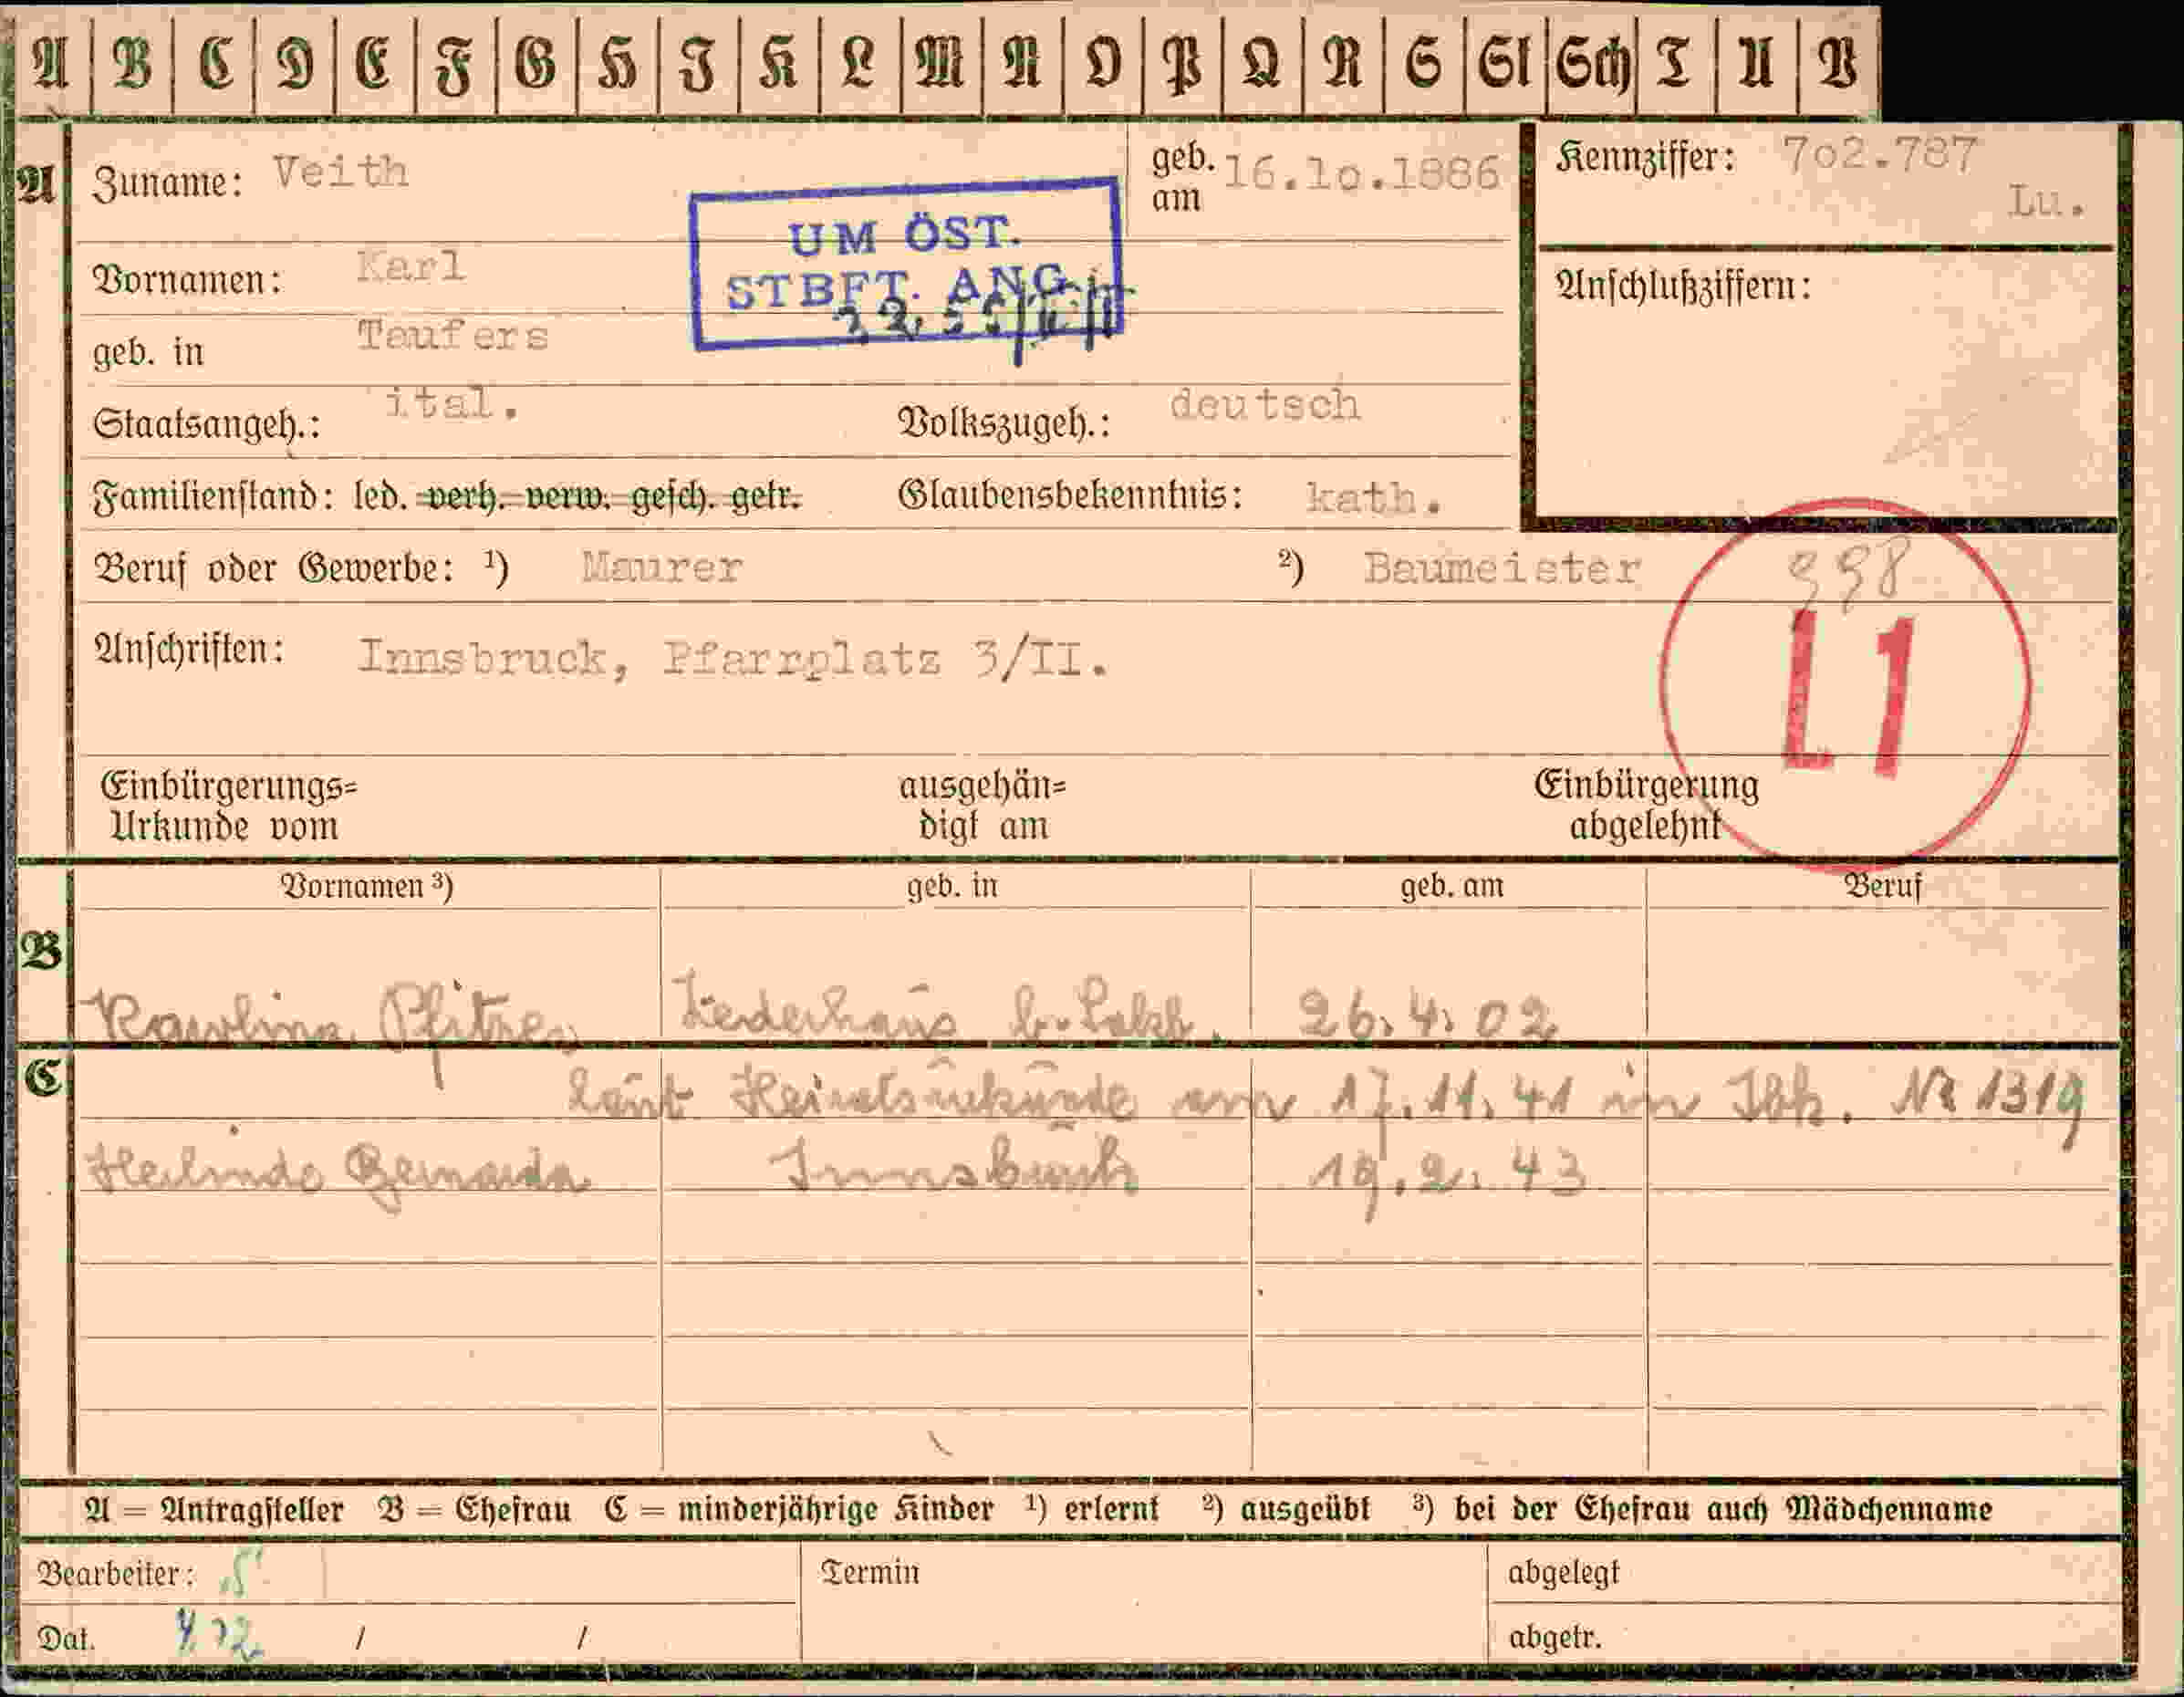 A B C D E F G H J K L M N O P Q R S St Sch T U V
A Zuname: Veith
geb. am 16.10.1886
Kennziffer: 702.787
Lu.
UM ÖST.
STBFT. ANG.
Vornamen: Karl
Anschlußziffern:
geb. in Taufers
Staatsangeh.: ital. Volkszugeh.: deutsch
Familienstand: led. verh. verw. gesch. getr. Glaubensbekenntnis: kath.
Beruf oder Gewerbe: ¹) Maurer ²) Baumeister
998
L1
Anschriften: Innsbruck, Pfarrplatz 3/II.
Einbürgerungs=
Urkunde vom
ausgehän=
digt am
Einbürgerung
abgelehnt
Vornamen ³) geb. in geb. am Beruf
B
Karolina Pfitzer 26.4.02
C
laut Heiratsurkunde am 17.11.41 in Ibk. Nr 1319
Herlinde Bernarda Innsbruck 19.2.43
A = Antragsteller B = Ehefrau C = minderjährige Kinder ¹) erlernt ²) ausgeübt ³) bei der Ehefrau auch Mädchenname
Bearbeiter: Termin abgelegt
Dat. / / abgetr.